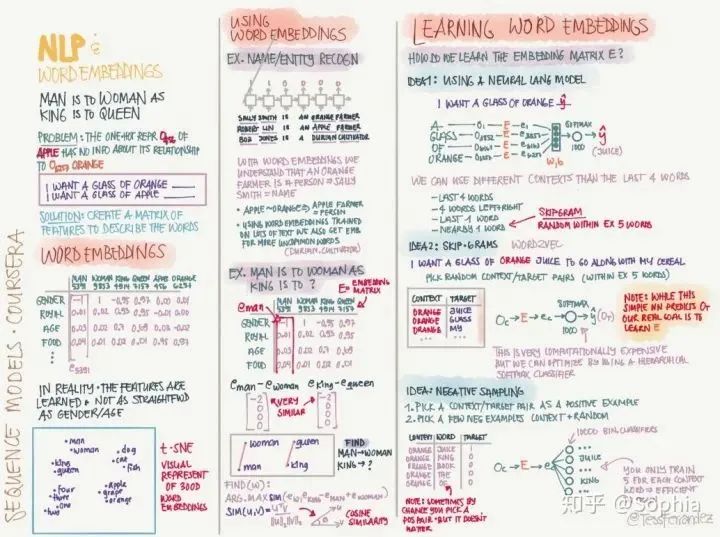 SEQUENCE MODELS · COURSERA
NLP &
WORD EMBEDDINGS
MAN IS TO WOMAN AS
KING IS TO QUEEN
PROBLEM: THE ONE-HOT REPR. OF
APPLE HAS NO INFO ABOUT ITS RELATIONSHIP
TO ORANGE
I WANT A GLASS OF ORANGE ____
I WANT A GLASS OF APPLE ____
SOLUTION: CREATE A MATRIX OF
FEATURES TO DESCRIBE THE WORDS
WORD EMBEDDINGS
MAN WOMAN KING QUEEN APPLE ORANGE
5391 9853 4914 7157 456 6257
GENDER -1 1 -0.95 0.97 0.00 0.01
ROYAL 0.01 0.02 0.93 0.95 -0.01 0.00
AGE 0.03 0.02 0.7 0.69 0.03 -0.02
FOOD 0.04 0.01 0.02 0.01 0.95 0.97
e5391
IN REALITY · THE FEATURES ARE
LEARNED & NOT AS STRAIGHTFWD
AS GENDER/AGE
man
woman
dog
cat
fish
king
queen
four
three
one
two
apple
grape
orange
t-SNE
VISUAL
REPRESENT
OF 300D
WORD
EMBEDDINGS
USING
WORD EMBEDDINGS
EX. NAME/ENTITY RECOGN
1 1 0 0 0 0
SALLY SMITH IS AN ORANGE FARMER
ROBERT LIN IS AN APPLE FARMER
BOB JONES IS A DURIAN CULTIVATOR
WITH WORD EMBEDDINGS WE
UNDERSTAND THAT AN ORANGE
FARMER IS A PERSON ⇒ SALLY
SMITH = NAME
• APPLE ~ ORANGE ⇒ APPLE FARMER
= PERSON
• USING WORD EMBEDDINGS TRAINED
ON LOTS OF TEXT WE ALSO GET EMB
FOR MORE UNCOMMON WORDS
(DURIAN, CULTIVATOR)
EX. MAN IS TO WOMAN AS
KING IS TO ?
E = EMBEDDING
MATRIX
eman
MAN WOMAN KING QUEEN
5391 9853 4914 7157
GENDER -1 1 -0.95 0.97
ROYAL 0.01 0.02 0.93 0.95
AGE 0.03 0.02 0.7 0.69
FOOD 0.09 0.01 0.02 0.01
eman - ewoman eking - equeen
[-2 0 0 0] VERY SIMILAR [-2 0 0 0]
woman queen
man king
FIND
MAN → WOMAN
KING → ?
FIND(W):
ARG. MAX SIM(ew, eKING - eMAN + eWOMAN)
SIM(u,v) = uTv / ||u||2 ||v||2
COSINE
SIMILARITY
LEARNING WORD EMBEDDINGS
HOW DO WE LEARN THE EMBEDDING MATRIX E?
IDEA1: USING A NEURAL LANG MODEL
I WANT A GLASS OF ORANGE ŷ
A
GLASS
OF
ORANGE
SOFTMAX
ŷ
(JUICE)
WE CAN USE DIFFERENT CONTEXTS THAN THE LAST 4 WORDS
- LAST 4 WORDS
- 4 WORDS LEFT+RIGHT
- LAST 1 WORD
- NEARBY 1 WORD
SKIPGRAM
RANDOM WITHIN EX 5 WORDS
IDEA2: SKIP-GRAMS WORD2VEC
I WANT A GLASS OF ORANGE JUICE TO GO ALONG WITH MY CEREAL
PICK RANDOM CONTEXT/TARGET PAIRS (WITHIN EX 5 WORDS)
CONTEXT TARGET
ORANGE JUICE
ORANGE GLASS
ORANGE MY
...
Oc → E → ec → SOFTMAX → ŷ
NOTE: WHILE THIS
SIMPLE NN PREDICTS
OUR REAL GOAL IS TO
LEARN E
THIS IS VERY COMPUTATIONALLY EXPENSIVE
BUT WE CAN OPTIMIZE BY USING A HIERARCHICAL
SOFTMAX CLASSIFIER
IDEA: NEGATIVE SAMPLING
1. PICK A CONTEXT/TARGET PAIR AS A POSITIVE EXAMPLE
2. PICK A FEW NEG EXAMPLES CONTEXT + RANDOM
CONTEXT WORD TARGET
ORANGE JUICE 1
ORANGE KING 0
ORANGE BOOK 0
ORANGE THE 0
ORANGE OF 0
NOTE: SOMETIMES BY
CHANCE YOU PICK A
POS PAIR · BUT IT DOESN'T
MATTER
Oc → E → ec
10000 BIN. CLASSIFIERS
JUICE
KING
YOU ONLY TRAIN
5 FOR EACH CONTEXT
WORD ⇒ EFFICIENT
知乎 @Sophia
@TessFerrandez